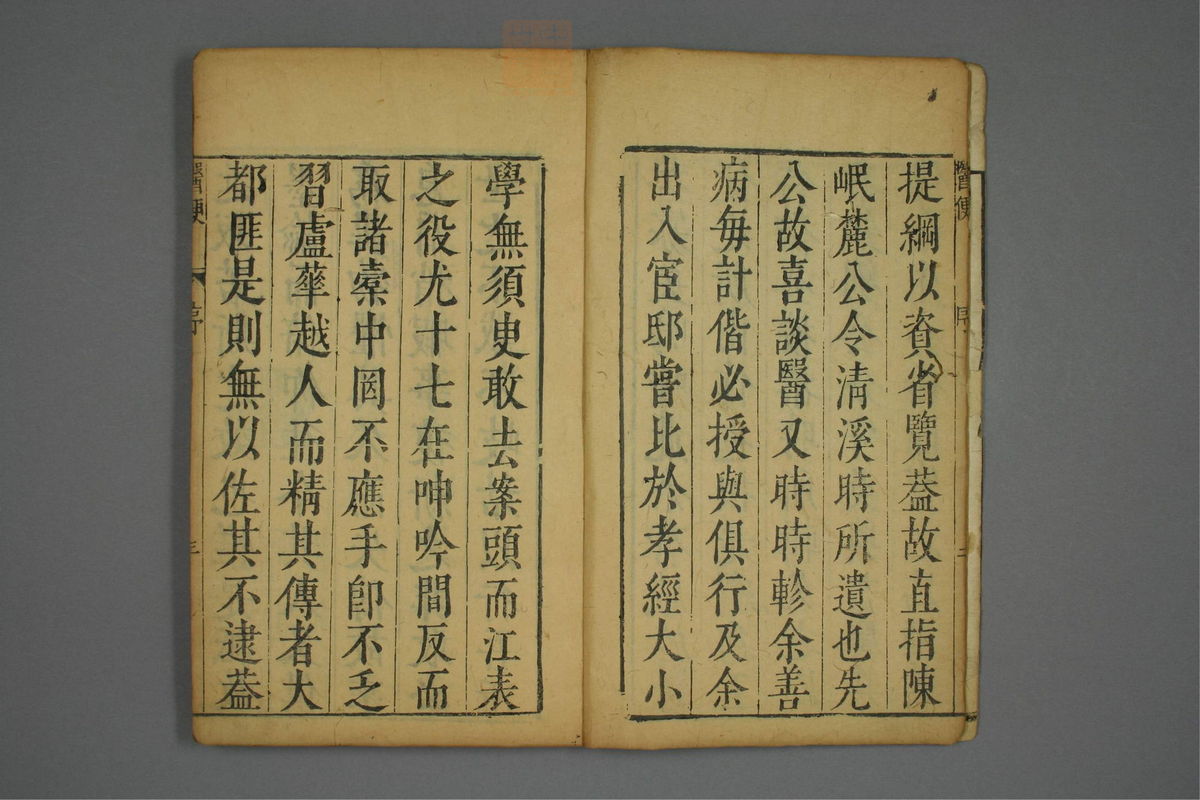 提綱以資省覽葢故直指陳
岷麓公令清溪時所遺也先
公故喜談醫又時時軫余善
病每計偕必授與俱行及余
出入宦邸嘗比於孝經大小
學無須臾敢去案頭而江表
之役尤十七在呻吟間反而
取諸槖中罔不應手卽不乏
習盧華越人而精其傳者大
都匪是則無以佐其不逮葢
醫便
序
三
醫便
序
二